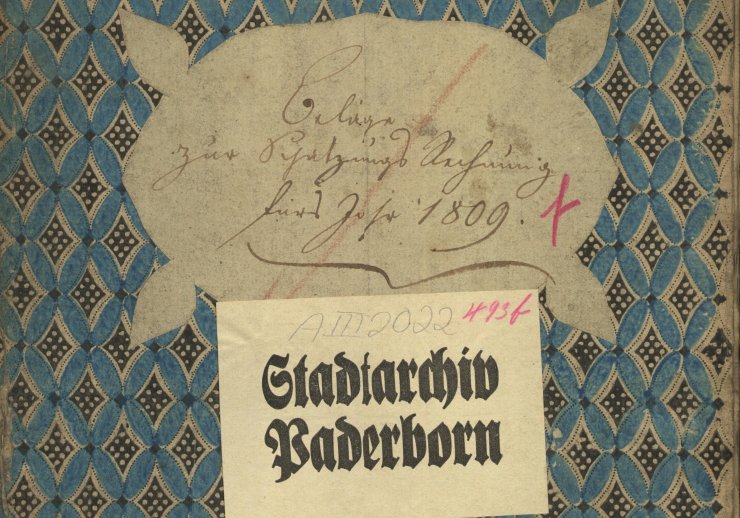 Beläge
zur Schatzungs Rechnung
fürs Johr 1809.
A III 2022 493f
Stadtarchiv
Paderborn